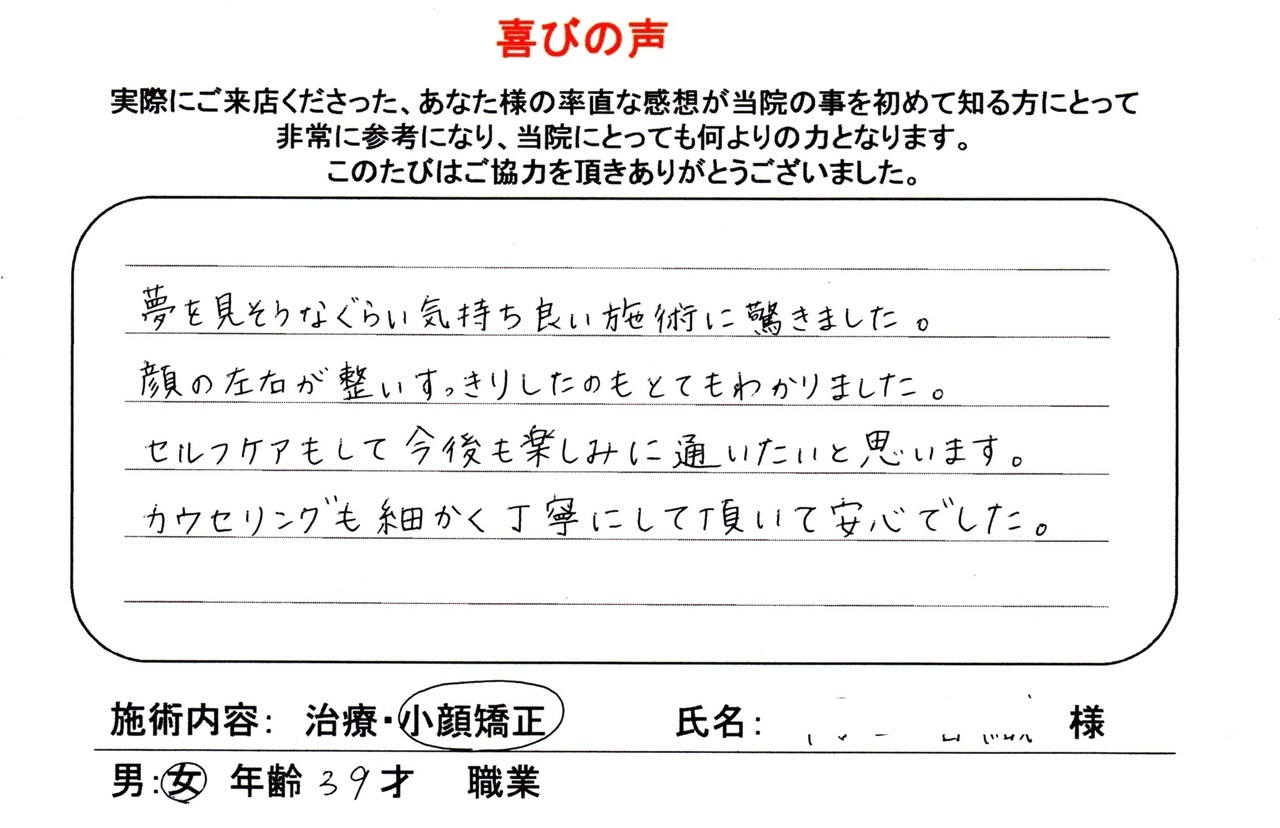 喜びの声
実際にご来店くださった、あなた様の率直な感想が当院の事を初めて知る方にとって
非常に参考になり、当院にとっても何よりの力となります。
このたびはご協力を頂きありがとうございました。
夢を見そうなぐらい気持ち良い施術に驚きました。
顔の左右が整いすっきりしたのもとてもわかりました。
セルフケアもして今後も楽しみに通いたいと思います。
カウセリングも細かく丁寧にして頂いて安心でした。
施術内容： 治療・小顔矯正 氏名： 様
男：女 年齢 39才 職業